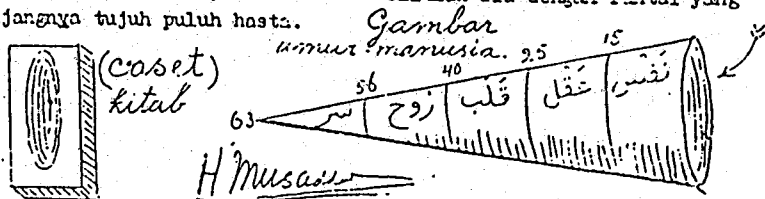 jangnya tujuh puluh hasta.
Gambar
umur manusia.
(coset)
kitab
63 56 40 25 15
سر رَوح قَلَب عَقَل نَفَس
H Musa